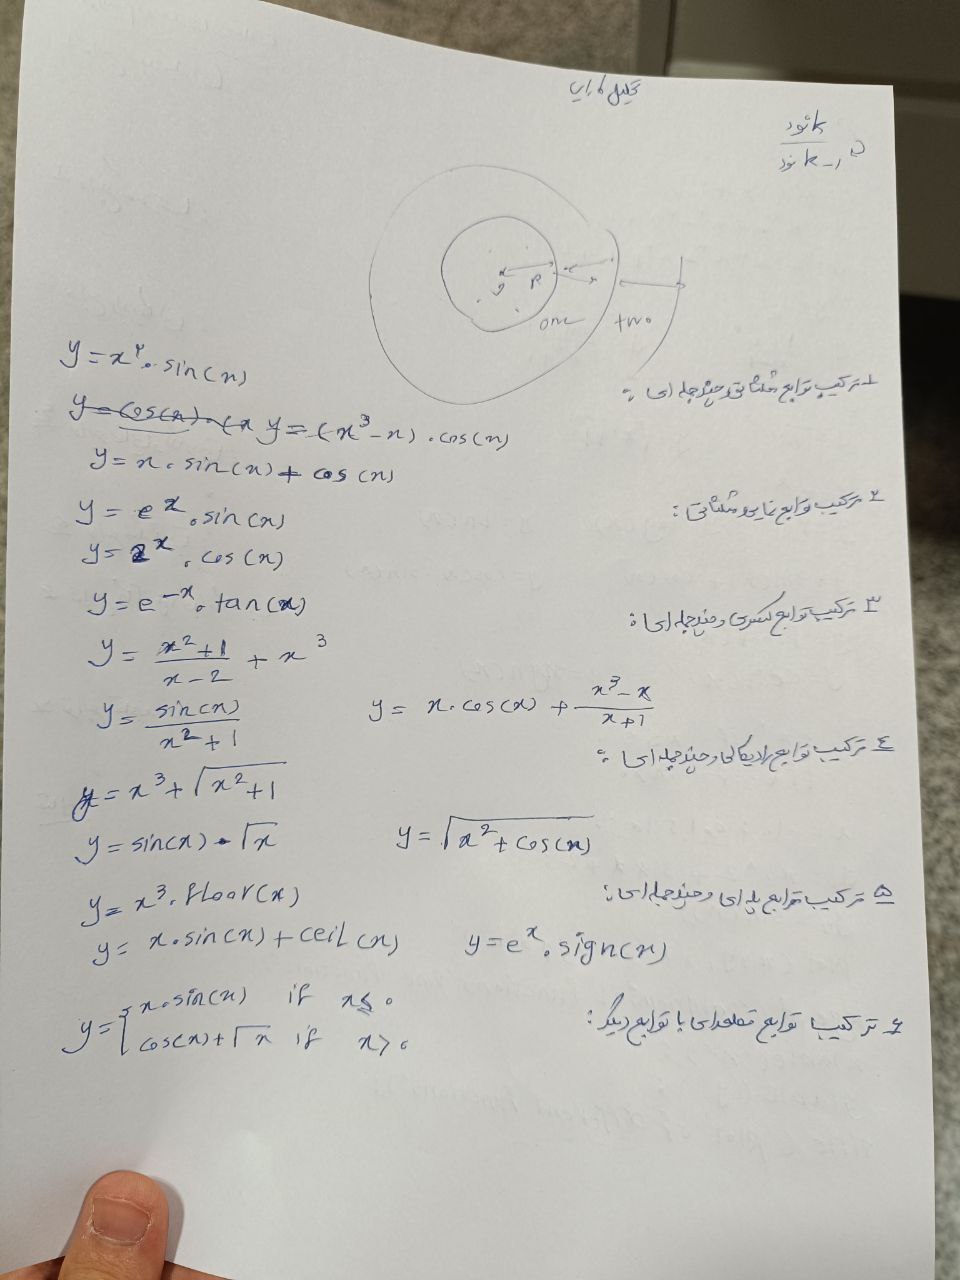 تحلیل
k نود
k-1 نود
R
one two
۱- ترکیب توابع مثلثاتی و چندجمله ای :
y = x². sin(x)
y = cos(x).(x y = (x³-x) . cos(x)
y = x. sin(x) + cos(x)
۲ ترکیب توابع نمایی و مثلثاتی :
y = e^x . sin(x)
y = 2^x . cos(x)
y = e^-x . tan(x)
۳ ترکیب توابع کسری و چندجمله ای :
y = (x²+1)/(x-2) + x³
y = sin(x)/(x²+1) y = x. cos(x) + (x³-x)/(x+1)
٤ ترکیب توابع رادیکالی و چندجمله ای :
y = x³ + √(x²+1)
y = sin(x) - √x y = √(x² + cos(x))
۵ ترکیب توابع پله ای و چندجمله ای :
y = x³. floor(x)
y = x. sin(x) + ceil(x) y = e^x . sign(x)
۶ ترکیب توابع قطعه ای با توابع دیگر :
y = { x. sin(x) if x ≤ 0
cos(x) + √x if x > 0